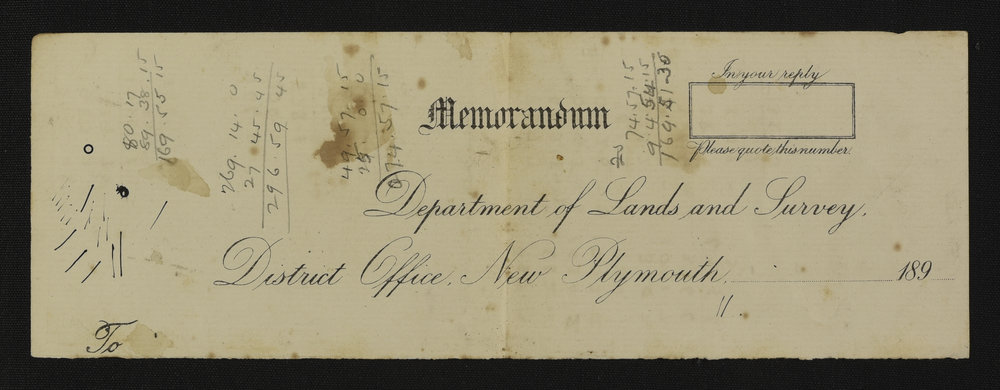 In your reply
Memorandum
Please quote this number.
Department of Lands and Survey,
District Office, New Plymouth, 189
To
80.17
89.38.15
169.55.15
269.14.0
27 45.45
296.59 45
49.57.15
074.57.15
74.57.15
769.51.30